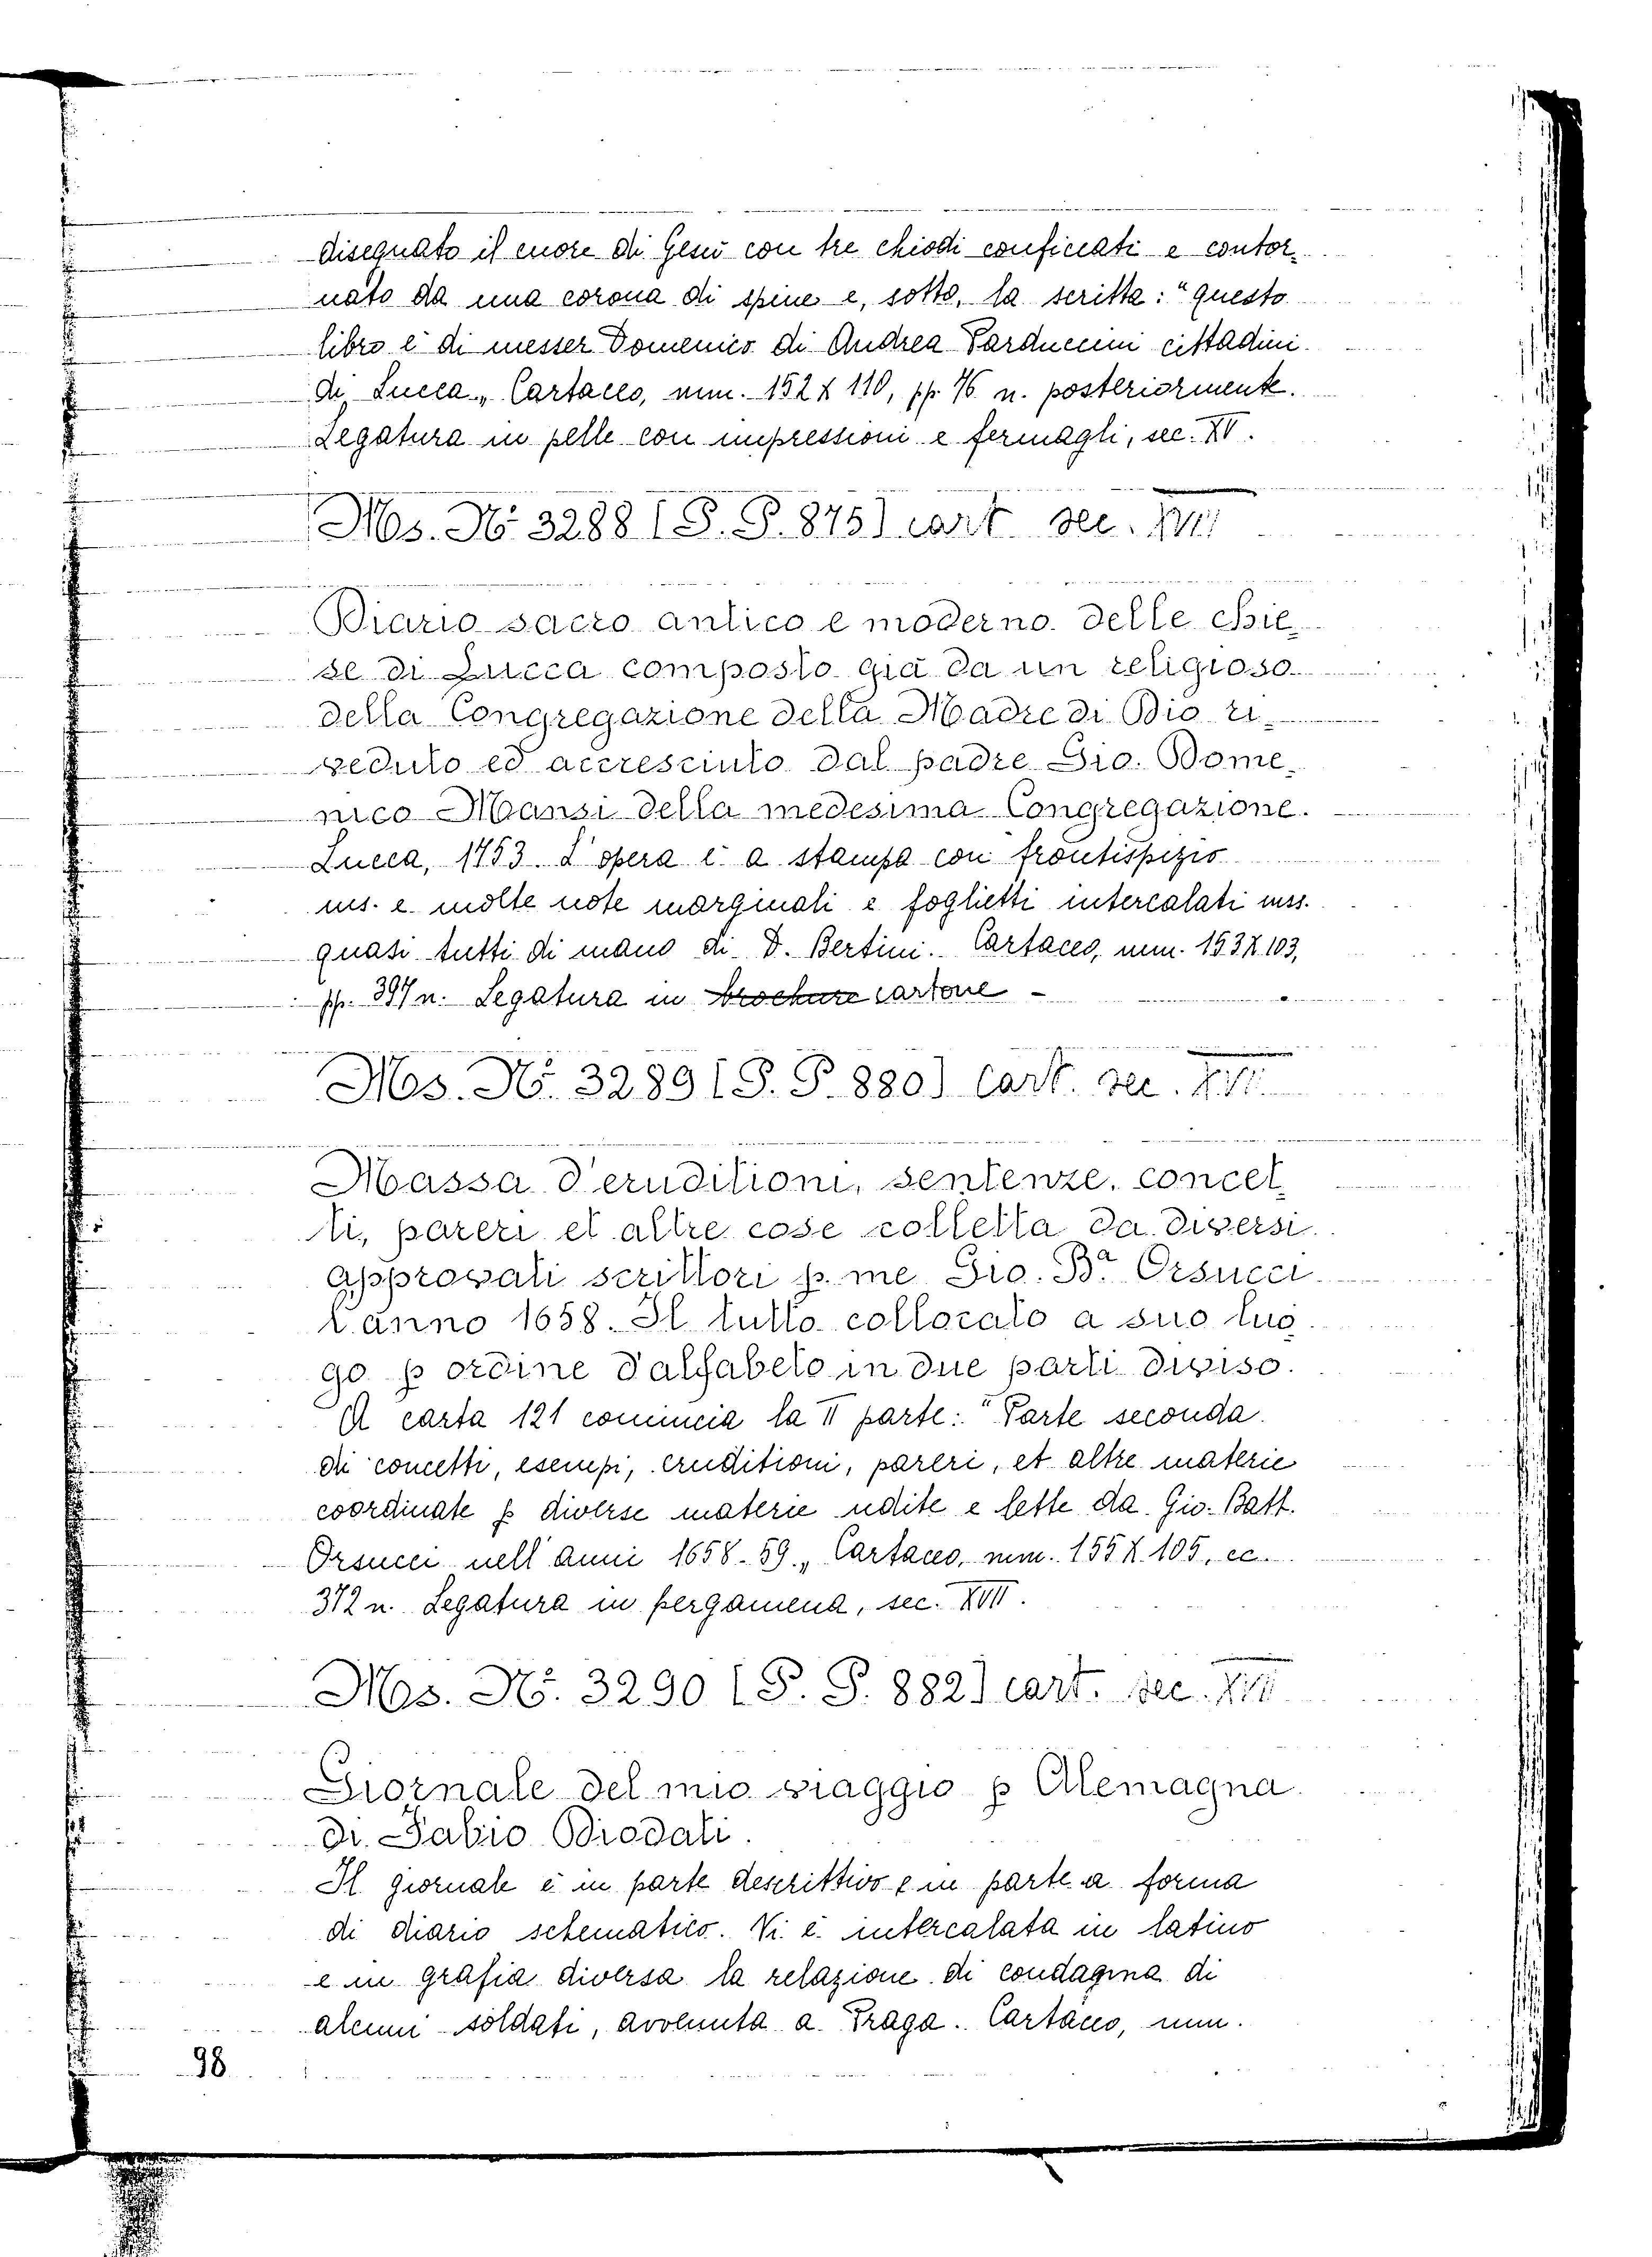 disegnato il cuore di Gesù con tre chiodi conficcati e contor-
nato da una corona di spine e, sotto, la scritta: "questo
libro è di messer Domenico di Andrea Parduccini cittadini
di Lucca„ Cartaceo, mm. 152 x 110, pp. 76 n. posteriormente.
Legatura in pelle con impressioni e fermagli, sec. XV.
Ms. N° 3288 (S. P. 875) cart. sec.
Diario sacro antico e moderno delle chie-
se di Lucca composto già da un religioso
della Congregazione della Madre di Dio ri-
veduto ed accresciuto dal padre Gio. Dome-
nico Mansi della medesima Congregazione.
Lucca, 1753. L'opera è a stampa con frontispizio
ms. e molte note marginali e foglietti intercalati mss.
quasi tutti di mano di D. Bertini. Cartaceo, mm. 153 x 103,
pp. 397 n. Legatura in brochure cartone -
Ms. N°. 3289 (S. P. 880) cart. sec.
Massa d'eruditioni, sentenze, concet-
ti, pareri et altre cose colletta da diversi
approvati scrittori p. me Gio. Ba Orsucci
l'anno 1658. Il tutto collocato a suo luo
go p ordine d'alfabeto in due parti diviso.
A carta 121 comincia la II parte: "Parte seconda
di concetti, esempi, eruditioni, pareri, et altre materie
coordinate p diverse materie udite e lette da Gio. Batt.
Orsucci nell'anni 1658-59„ Cartaceo, mm. 155 x 105, cc.
372 n. Legatura in pergamena, sec. XVII.
Ms. N°. 3290 (S. P. 882) cart. sec. XVII
Giornale del mio viaggio p Alemagna
di Fabio Diodati.
Il giornale è in parte descrittivo e in parte a forma
di diario schematico. Vi è intercalata in latino
e in grafia diversa la relazione di condagna di
alcuni soldati, avvenuta a Praga. Cartaceo, mm.
98